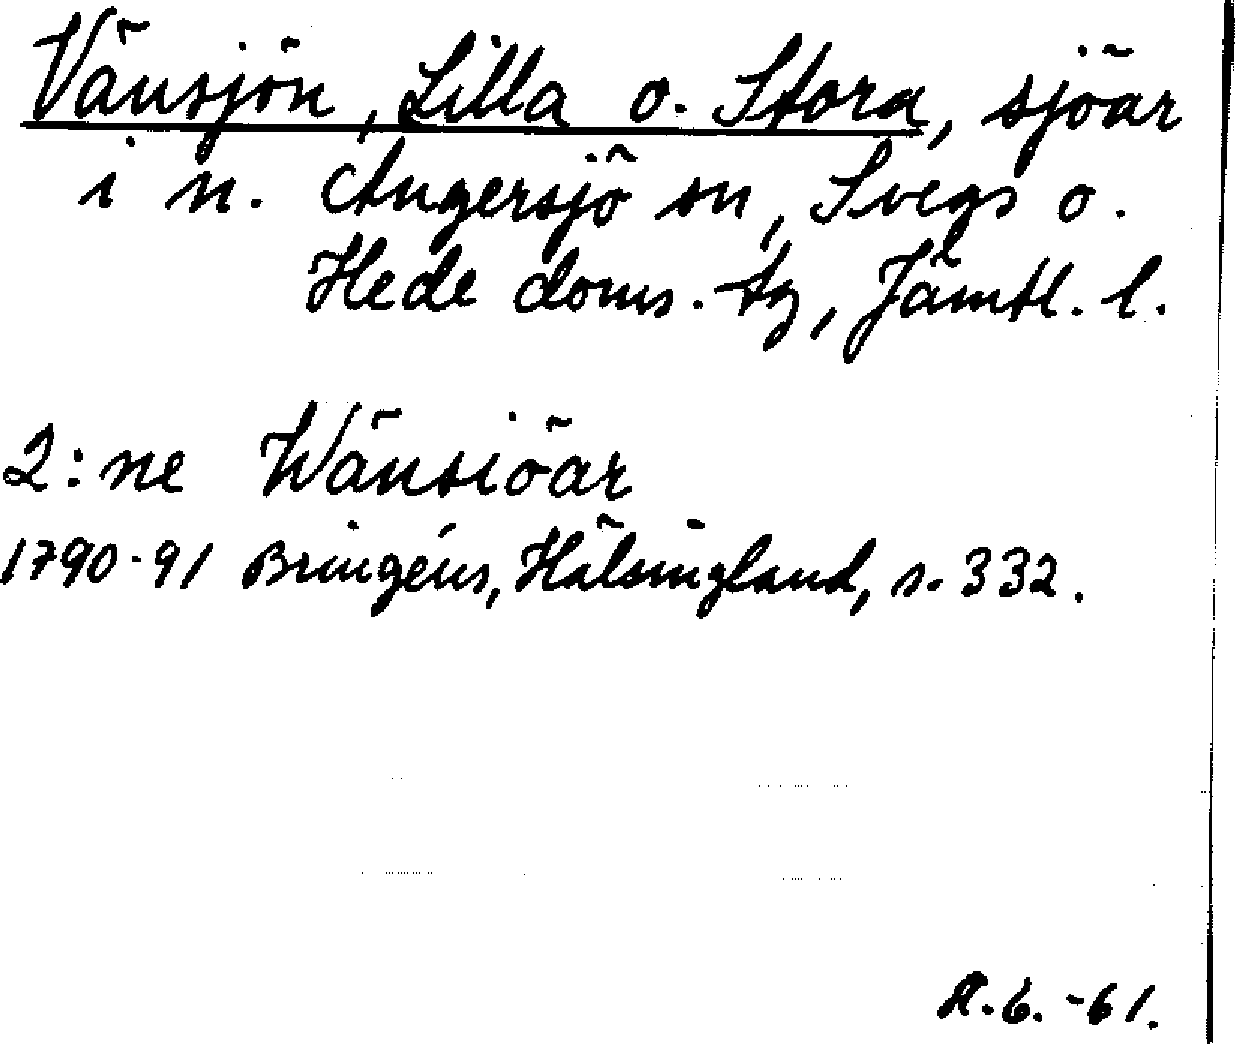 Vänsjön, Lilla o. Stora, sjöar
i n. Ängersjö sn, Svegs o.
Hede doms. tg, Jämtl. l.
2:ne Wänsiöar
1790-91 Bringéus, Hälsingland, s. 332.
A.6.-61.